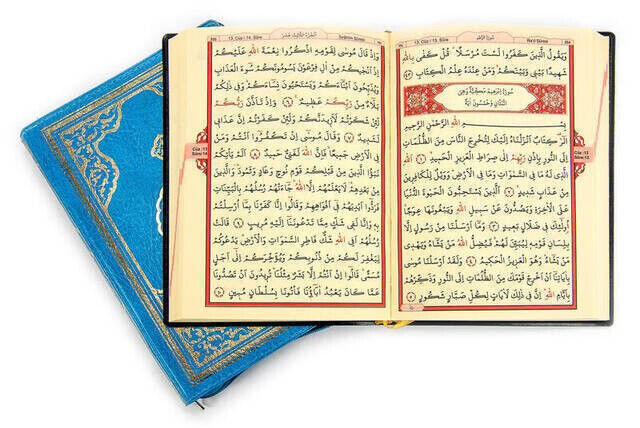 13. Cüz / 13. Sûre
سورة الرعد
Ra'd Sûresi
وَيَقُولُ الَّذِينَ كَفَرُوا لَسْتَ مُرْسَلًا قُلْ كَفٰى بِاللّٰهِ
شَهِيدًا بَيْنِي وَبَيْنَكُمْ وَمَنْ عِنْدَهُ عِلْمُ الْكِتَابِ ﴿٤٣﴾
سُورَةُ إِبْرٰهِيمَ مَكِّيَّةٌ وَهِيَ
اثْنَتَانِ وَخَمْسُونَ اٰيَةً
بِسْمِ اللّٰهِ الرَّحْمٰنِ الرَّحِيمِ
الٓرٰ كِتَابٌ اَنْزَلْنَاهُ اِلَيْكَ لِتُخْرِجَ النَّاسَ مِنَ الظُّلُمَاتِ
اِلَى النُّورِ بِاِذْنِ رَبِّهِمْ اِلٰى صِرَاطِ الْعَزِيزِ الْحَمِيدِ ﴿١﴾ اَللّٰهِ
الَّذِي لَهُ مَا فِي السَّمٰوَاتِ وَمَا فِي الْاَرْضِ وَوَيْلٌ لِلْكَافِرِينَ
مِنْ عَذَابٍ شَدِيدٍ ﴿٢﴾ اَلَّذِينَ يَسْتَحِبُّونَ الْحَيٰوةَ الدُّنْيَا
عَلَى الْاٰخِرَةِ وَيَصُدُّونَ عَنْ سَبِيلِ اللّٰهِ وَيَبْغُونَهَا عِوَجًا
اُولٰئِكَ فِي ضَلَالٍ بَعِيدٍ ﴿٣﴾ وَمَا اَرْسَلْنَا مِنْ رَسُولٍ اِلَّا
بِلِسَانِ قَوْمِهِ لِيُبَيِّنَ لَهُمْ فَيُضِلُّ اللّٰهُ مَنْ يَشَاءُ وَيَهْدِي
مَنْ يَشَاءُ وَهُوَ الْعَزِيزُ الْحَكِيمُ ﴿٤﴾ وَلَقَدْ اَرْسَلْنَا مُوسٰى
بِاٰيَاتِنَا اَنْ اَخْرِجْ قَوْمَكَ مِنَ الظُّلُمَاتِ اِلَى النُّورِ وَذَكِّرْهُمْ
بِاَيَّامِ اللّٰهِ اِنَّ فِي ذٰلِكَ لَاٰيَاتٍ لِكُلِّ صَبَّارٍ شَكُورٍ ﴿٥﴾
Cüz :13
Sûre:13
13. Cüz / 14. Sûre
الجزء الثالث عشر
İbrâhîm Sûresi
وَاِذْ قَالَ مُوسٰى لِقَوْمِهِ اذْكُرُوا نِعْمَةَ اللّٰهِ عَلَيْكُمْ
اِذْ اَنْجٰيكُمْ مِنْ اٰلِ فِرْعَوْنَ يَسُومُونَكُمْ سُوءَ الْعَذَابِ
وَيُذَبِّحُونَ اَبْنَاءَكُمْ وَيَسْتَحْيُونَ نِسَاءَكُمْ وَفِي ذٰلِكُمْ
بَلَاءٌ مِنْ رَبِّكُمْ عَظِيمٌ ﴿٦﴾ وَاِذْ تَاَذَّنَ رَبُّكُمْ
لَئِنْ شَكَرْتُمْ لَاَزِيدَنَّكُمْ وَلَئِنْ كَفَرْتُمْ اِنَّ عَذَابِي
لَشَدِيدٌ ﴿٧﴾ وَقَالَ مُوسٰى اِنْ تَكْفُرُوا اَنْتُمْ وَمَنْ
فِي الْاَرْضِ جَمِيعًا فَاِنَّ اللّٰهَ لَغَنِيٌّ حَمِيدٌ ﴿٨﴾ اَلَمْ يَاْتِكُمْ
نَبَؤُا الَّذِينَ مِنْ قَبْلِكُمْ قَوْمِ نُوحٍ وَعَادٍ وَثَمُودَ وَالَّذِينَ
مِنْ بَعْدِهِمْ لَا يَعْلَمُهُمْ اِلَّا اللّٰهُ جَاءَتْهُمْ رُسُلُهُمْ بِالْبَيِّنَاتِ
فَرَدُّوا اَيْدِيَهُمْ فِي اَفْوَاهِهِمْ وَقَالُوا اِنَّا كَفَرْنَا بِمَا اُرْسِلْتُمْ
بِهِ وَاِنَّا لَفِي شَكٍّ مِمَّا تَدْعُونَنَا اِلَيْهِ مُرِيبٍ ﴿٩﴾ قَالَتْ
رُسُلُهُمْ اَفِي اللّٰهِ شَكٌّ فَاطِرِ السَّمٰوَاتِ وَالْاَرْضِ يَدْعُوكُمْ
لِيَغْفِرَ لَكُمْ مِنْ ذُنُوبِكُمْ وَيُؤَخِّرَكُمْ اِلٰى اَجَلٍ
مُسَمًّى قَالُوا اِنْ اَنْتُمْ اِلَّا بَشَرٌ مِثْلُنَا تُرِيدُونَ اَنْ تَصُدُّونَا
عَمَّا كَانَ يَعْبُدُ اٰبَاؤُنَا فَاْتُونَا بِسُلْطَانٍ مُبِينٍ ﴿١٠﴾
Cüz :13
Sûre:14